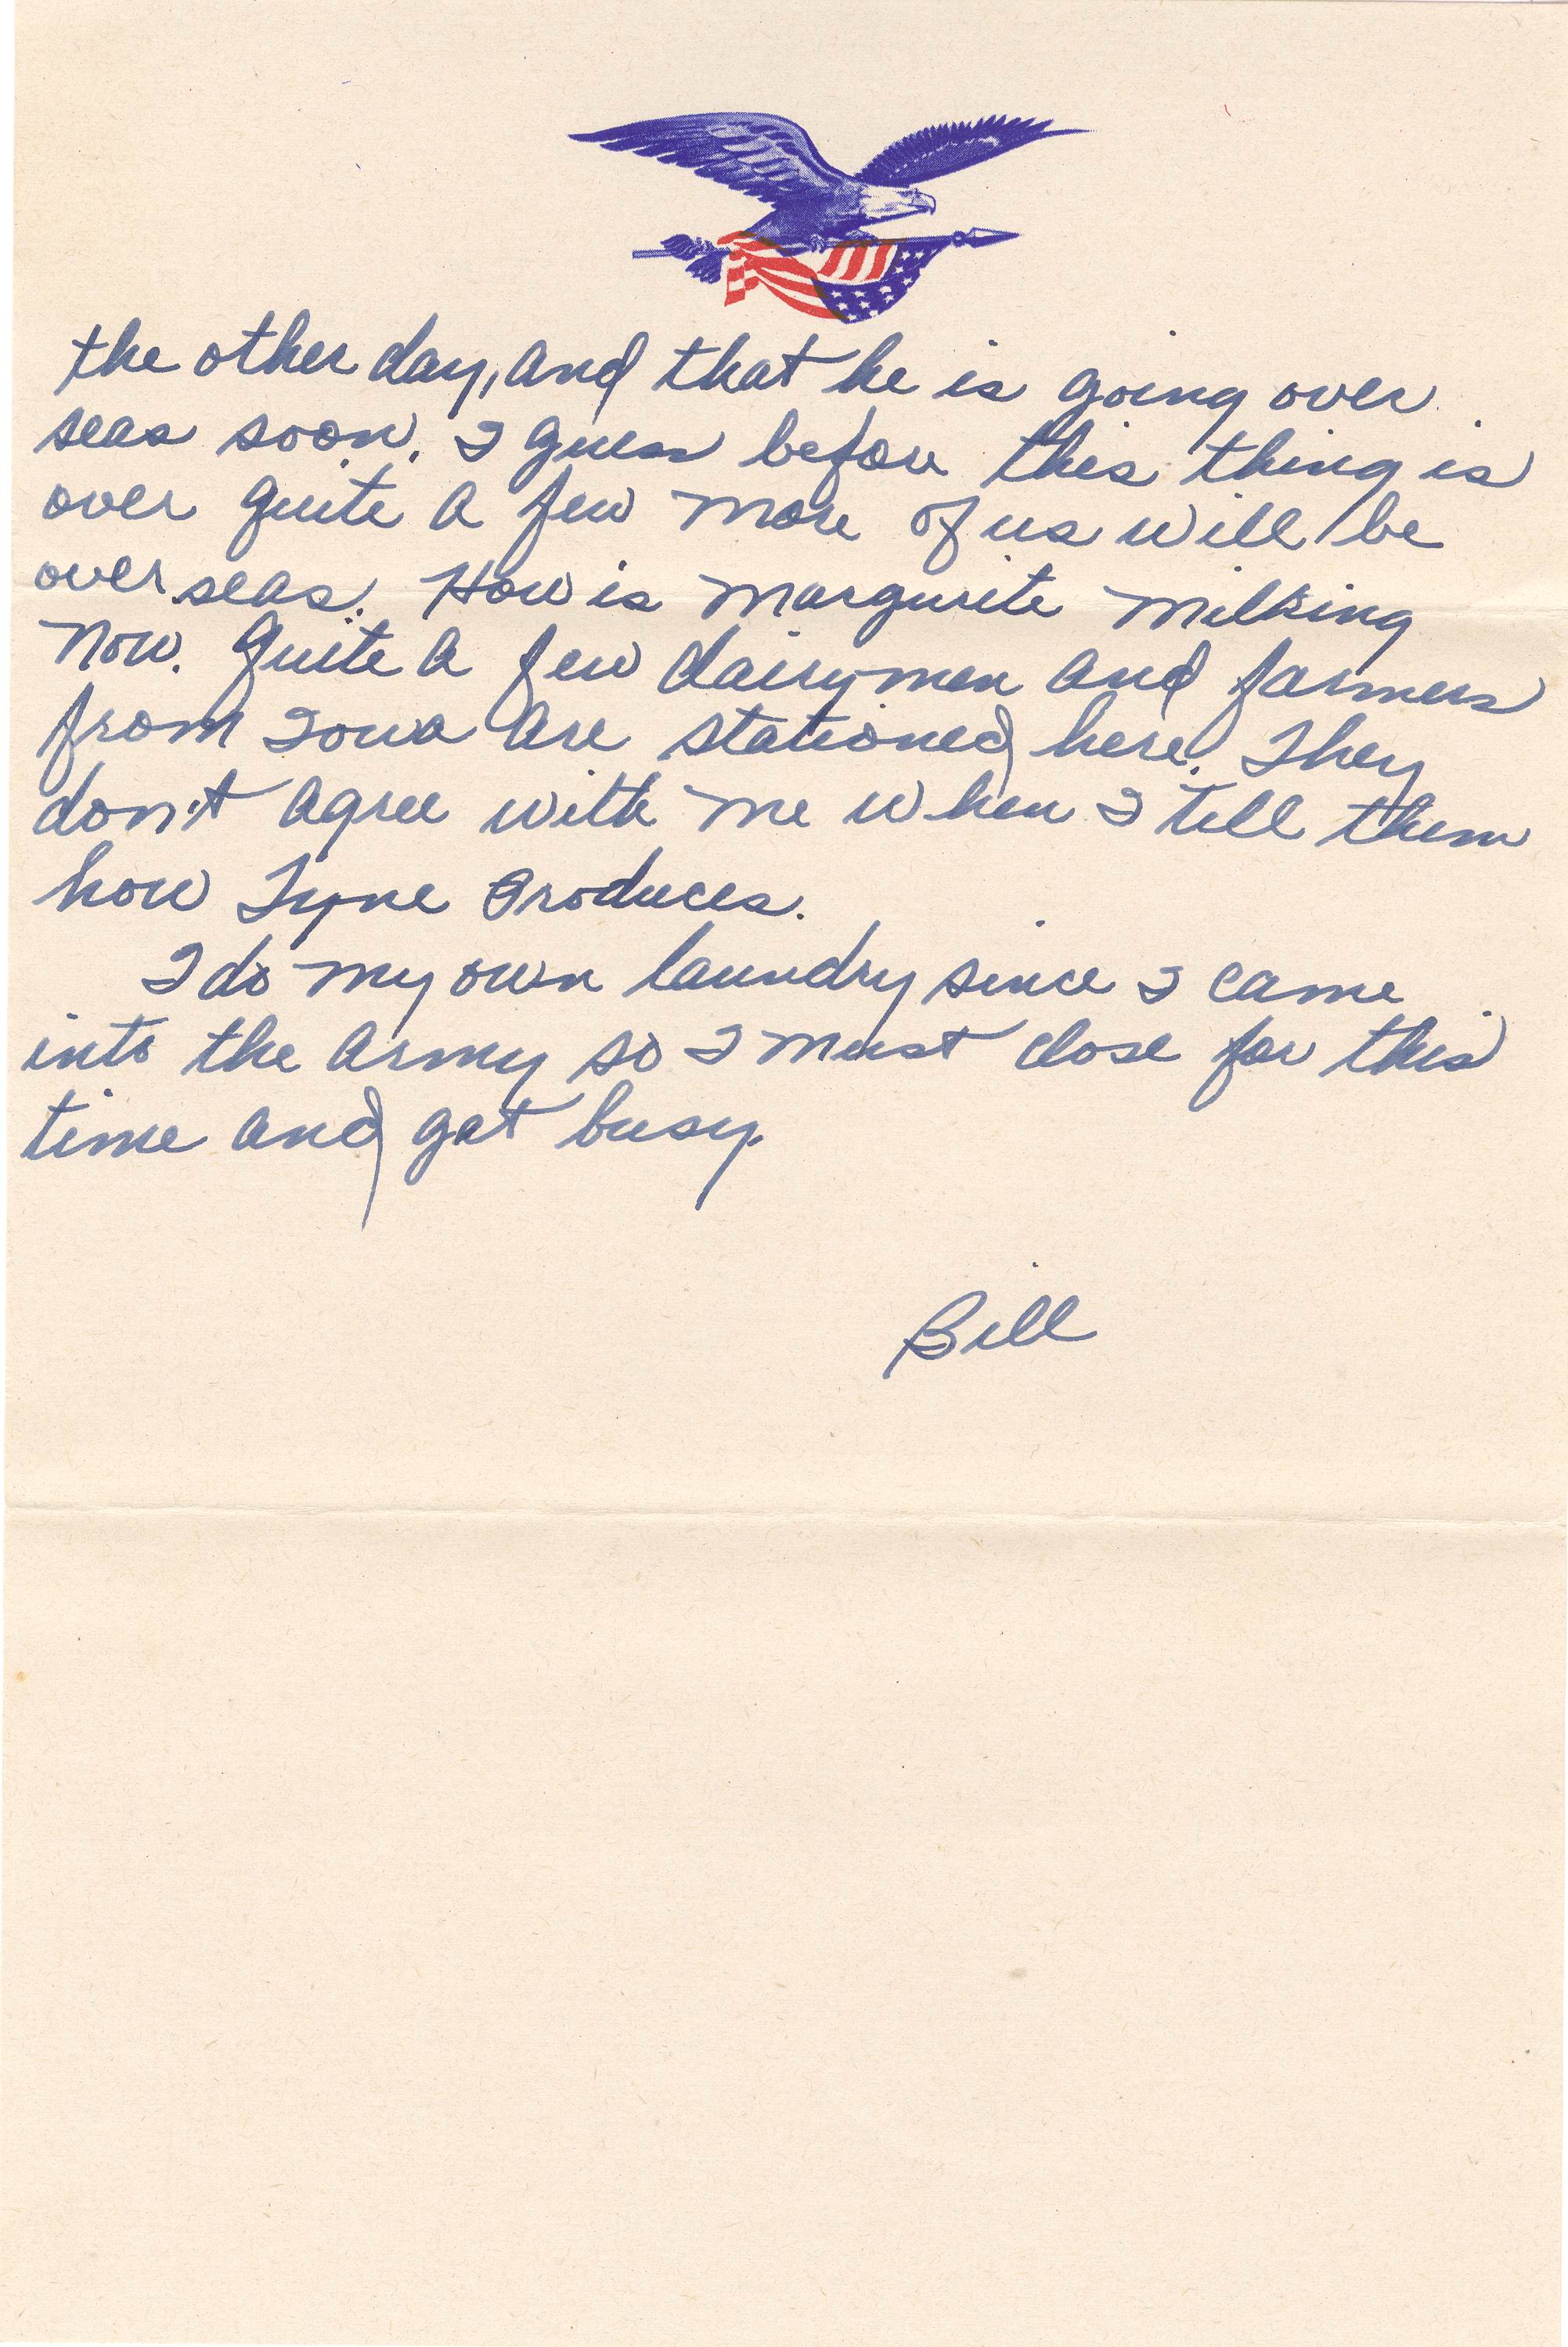 the other day, and that he is going over
seas soon. I guess before this thing is
over quite a few more of us will be
over seas. How is Margurite milking
now. Quite a few dairymen and farmers
from Iowa are stationed here. They
don't agree with me when I tell them
how Tyne Produces.
I do my own laundry since I came
into the army so I must close for this
time and get busy.
Bill